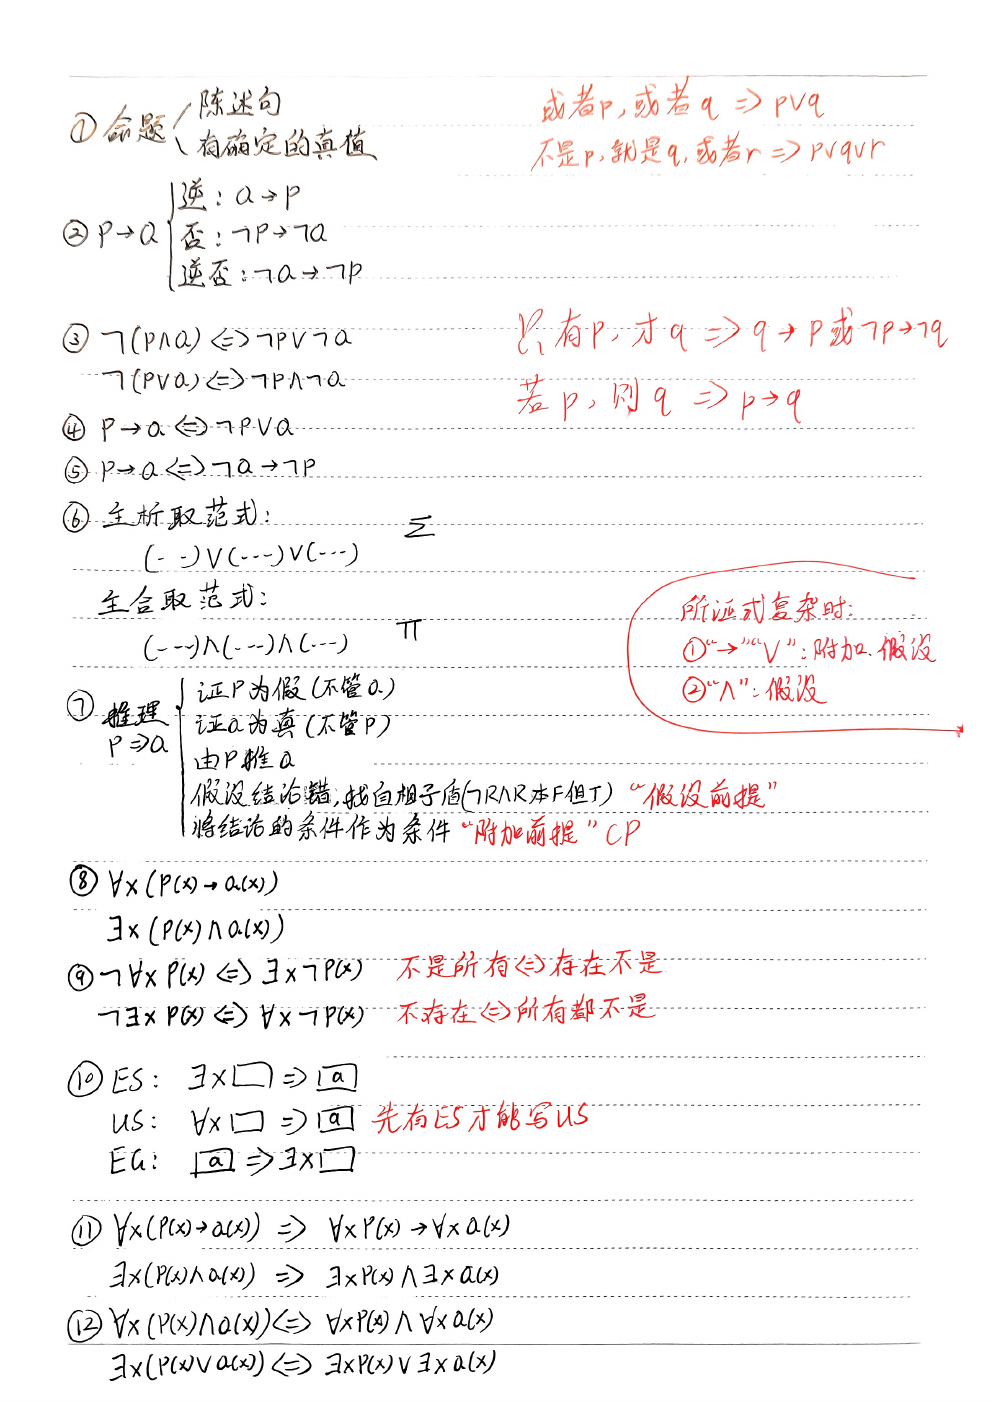 ① 命题 陈述句
有确定的真值
或者p, 或者q ⇒ p∨q
不是p, 就是q, 或者r ⇒ p∨q∨r
② P→Q
逆: Q→P
否: ¬P→¬Q
逆否: ¬Q→¬P
③ ¬(P∧Q) ⇔ ¬P∨¬Q
¬(P∨Q) ⇔ ¬P∧¬Q
只有p, 才q ⇒ q→p或¬p→¬q
若p, 则q ⇒ p→q
④ P→Q ⇔ ¬P∨Q
⑤ P→Q ⇔ ¬Q→¬P
⑥ 主析取范式: Σ
(- -)∨(---)∨(---)
主合取范式: Π
(---)∧(---)∧(---)
所证式复杂时:
①“→”“∨”: 附加、假设
②“∧”: 假设
⑦ 推理
P⇒Q
证P为假 (不管Q)
证Q为真 (不管P)
由P推Q
假设结论错, 找自相矛盾(¬R∧R本F但T) “假设前提”
将结论的条件作为条件 “附加前提” CP
⑧ ∀x(P(x)→Q(x))
∃x(P(x)∧Q(x))
⑨ ¬∀xP(x) ⇔ ∃x¬P(x) 不是所有⇔存在不是
¬∃xP(x) ⇔ ∀x¬P(x) 不存在⇔所有都不是
⑩ ES: ∃x□ ⇒ a
US: ∀x□ ⇒ a 先有ES才能写US
EG: a ⇒ ∃x□
⑪ ∀x(P(x)→Q(x)) ⇒ ∀xP(x)→∀xQ(x)
∃x(P(x)∧Q(x)) ⇒ ∃xP(x)∧∃xQ(x)
⑫ ∀x(P(x)∧Q(x)) ⇔ ∀xP(x)∧∀xQ(x)
∃x(P(x)∨Q(x)) ⇔ ∃xP(x)∨∃xQ(x)